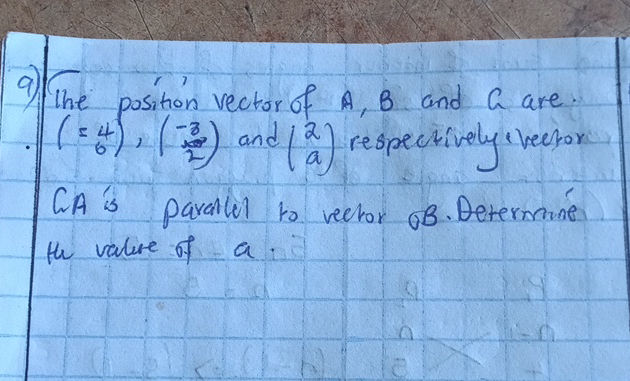 a) The position vector of A, B and C are.
(-4 6), (-3 2) and (2 a) respectively. vector
CA is parallel to vector OB. Determine
the value of a.